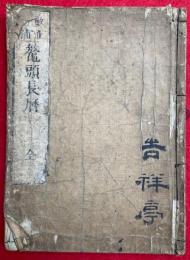 鼇頭長暦
全
吉祥亭